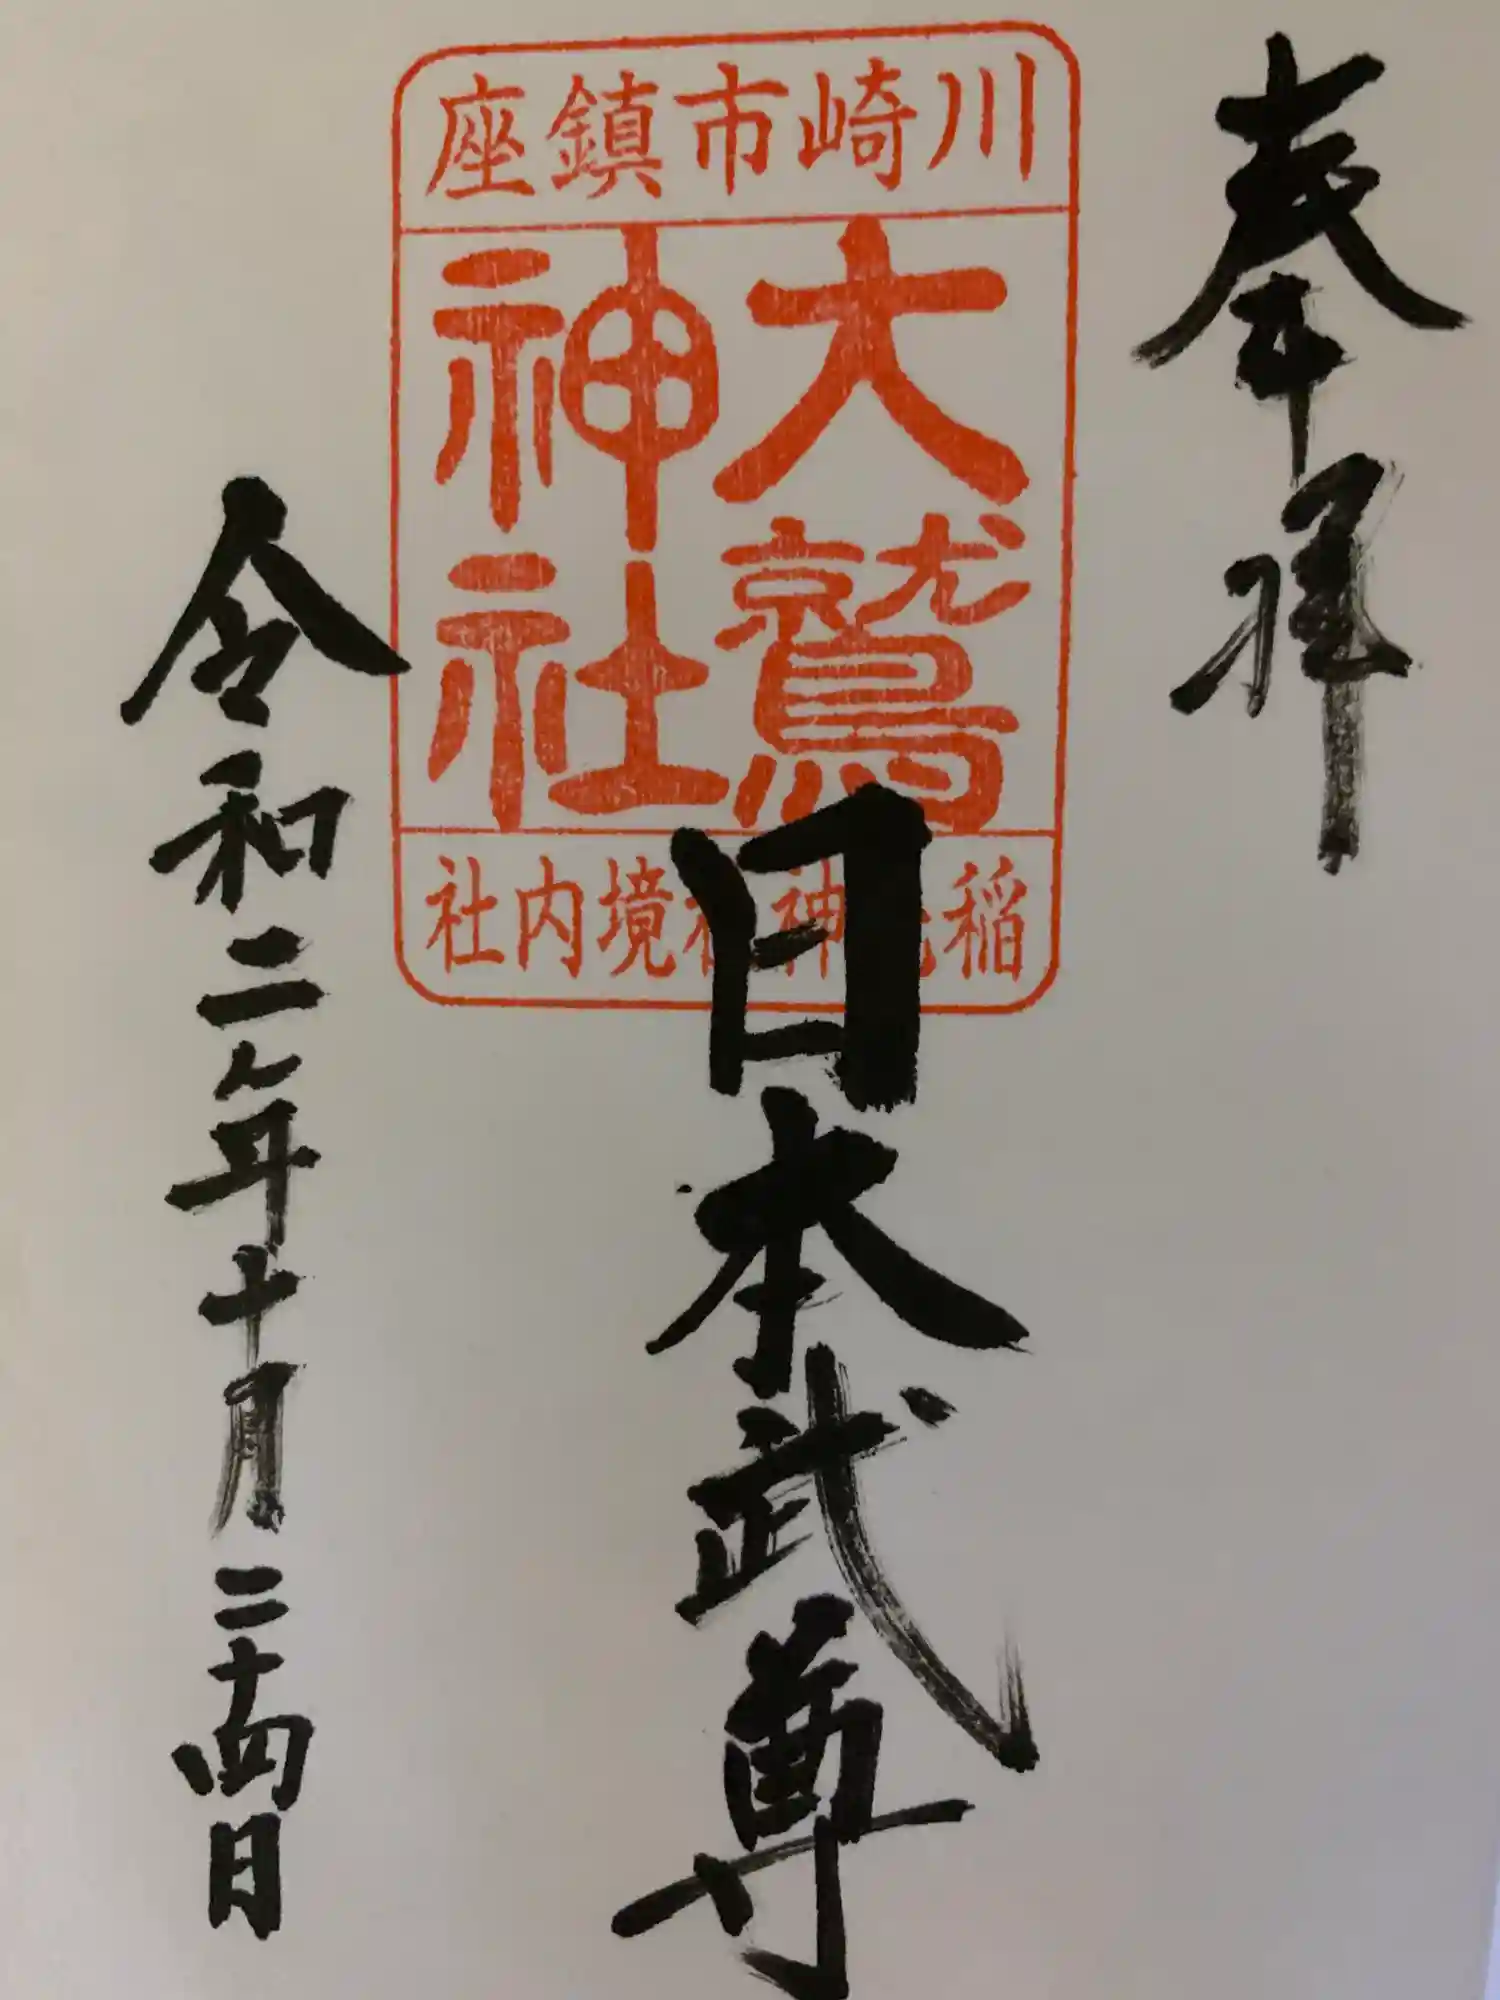 奉拝
川崎市鎮座
大鷲
神社
稲 神 境内社
日本武尊
令和二年十月二十四日